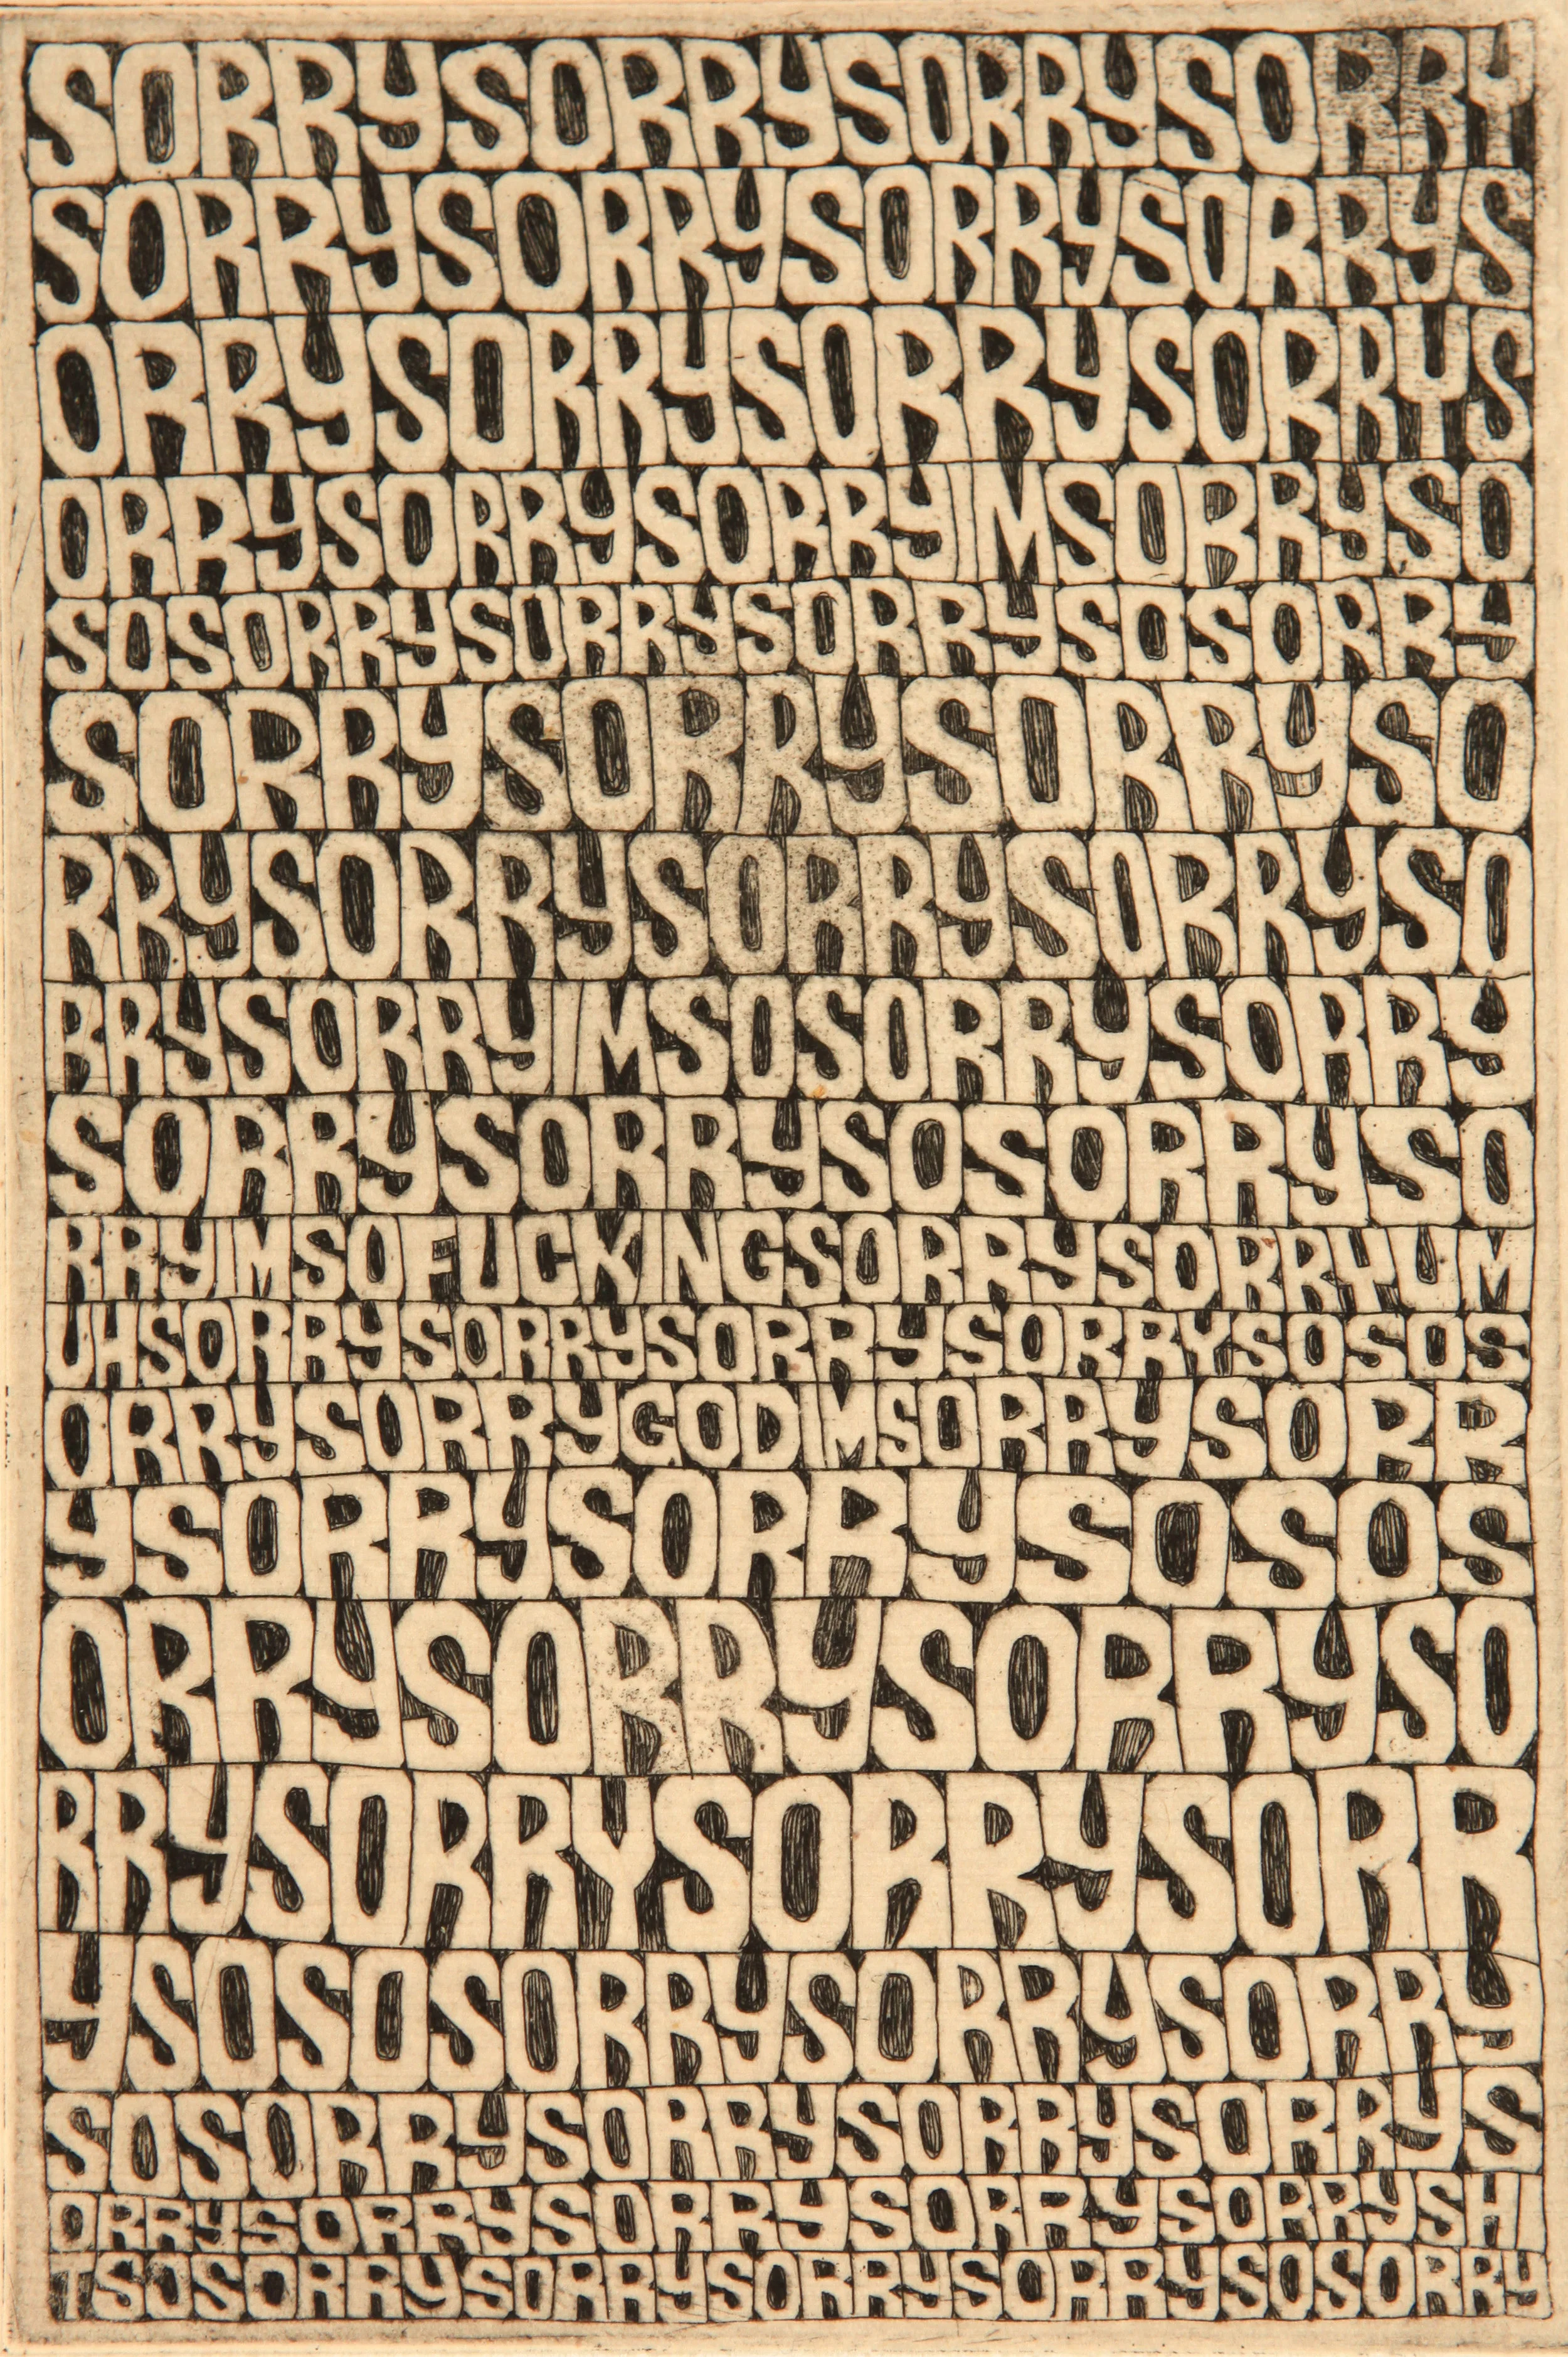 SORRYSORRYSORRYSORRY
SORRYSORRYSORRYSORRYS
ORRYSORRYSORRYSORRYS
ORRYSORRYSORRYIMSORRYSO
SOSORRYSORRYSORRYSOSORRY
SORRYSORRYSORRYSO
RRYSORRYSORRYSORRYSO
RRYSORRYIMSOSORRYSORRY
SORRYSORRYSOSORRYSO
RRYIMSOFUCKINGSORRYSORRYUM
UHSORRYSORRYSORRYSORRYSOSOS
ORRYSORRYGODIMSORRYSORR
YSORRYSORRYSOSOS
ORRYSORRYSORRYSO
RRYSORRYSORRYSORR
YSOSOSORRYSORRYSORRY
SOSORRYSORRYSORRYSORRYS
ORRYSORRYSORRYSORRYSORRYSHI
TSOSORRYSORRYSORRYSORRYSOSORRY